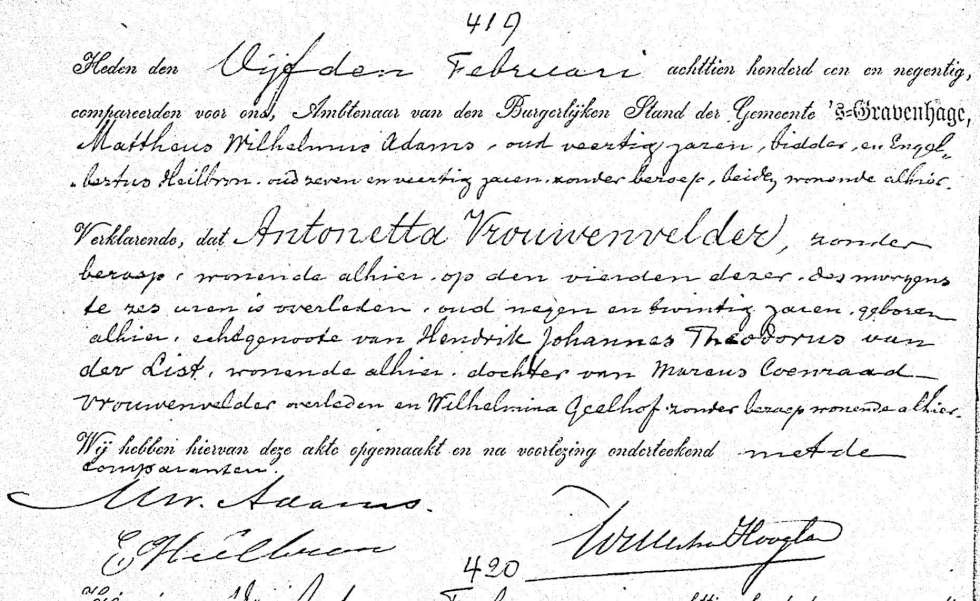 419
Heden den Vijfden Februari achttien honderd een en negentig,
compareerden voor ons, Ambtenaar van den Burgerlijken Stand der Gemeente 's-Gravenhage,
Mattheus Wilhelmus Adams, oud veertig jaren, bidder, en Engel„
bertus Heilbron, oud zeven en veertig jaren, zonder beroep, beide, wonende alhier.
Verklarende, dat Antonetta Vrouwenvelder, zonder
beroep, wonende alhier, op den vierden dezer, des morgens
te zes uren is overleden, oud negen en twintig jaren, geboren
alhier, echtgenoote van Hendrik Johannes Theodorus van
der List, wonende alhier, dochter van Marcus Coenraad
Vrouwenvelder overleden en Wilhelmina Geelhof zonder beroep wonende alhier.
Wij hebben hiervan deze akte opgemaakt en na voorlezing onderteekend met de
comparanten.
MW. Adams.
E Heilbron
420